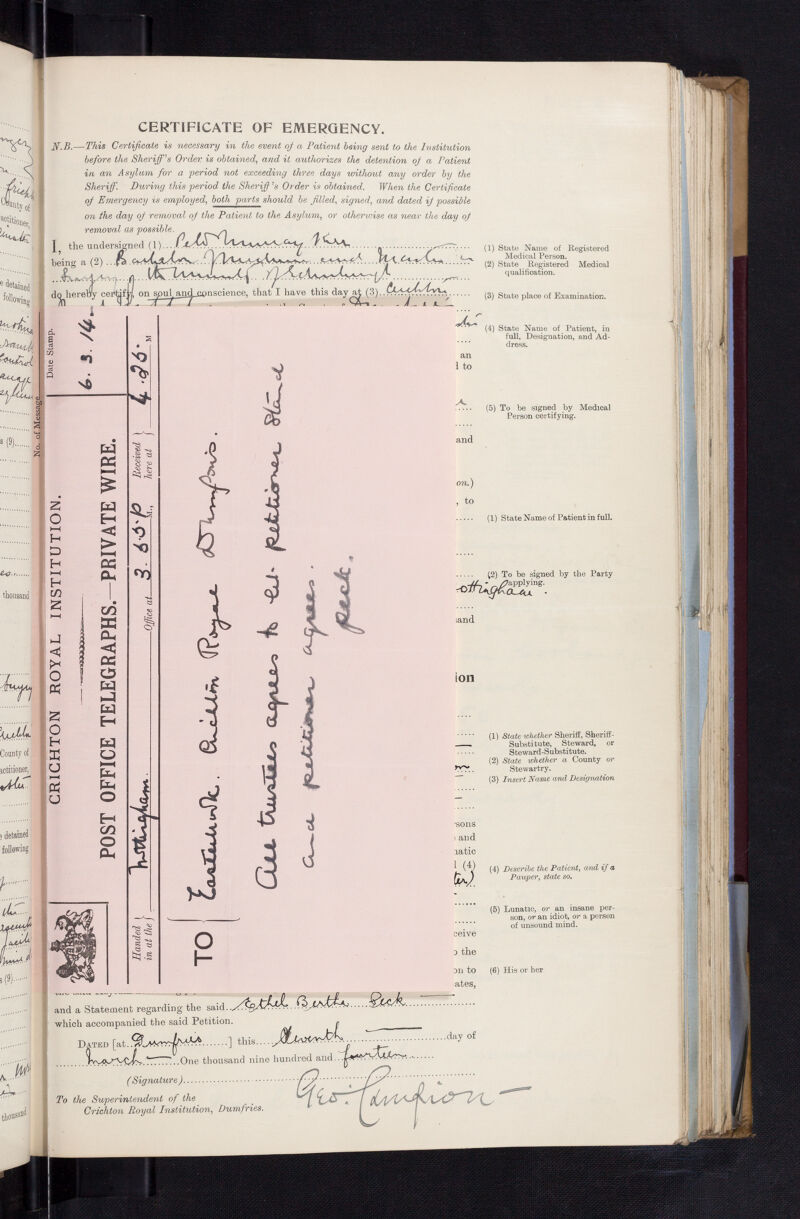 CERTIFICATE OF EMERGENCY.
N.B.—This Certificate is necessary in the event of a Patient being sent to the Institution
before the Sheriff's Order is obtained, and it authorizes the detention of a Patient
in an Asylum for a period not exceeding three days without any order by the
Sheriff. During this period the Sheriff's Order is obtained. When the Certificate
of Emergency is employed, both parts should be filled, signed, and dated if possible
on the day of removal of the Patient to the Asylum, or otherwise as near the day of
removal as possible.
I, the undersigned (1) Murray Kerr
being a (2) Bachelor of Medicine and Master in
Surgery of the University of Edinburgh
do hereby certify, on soul and conscience, that I have this day at (3) Crichton
(1) State Name of Registered
Medical Person.
(2) State Registered Medical
qualification.
(3) State place of Examination.
(4) State Name of Patient, in
full, Designation, and Ad-
dress.
(5) To be signed by Medical
Person certifying.
(1) State Name of Patient in full.
(2) To be signed by the Party
applying.
(1) State whether Sheriff, Sheriff-
Substitute, Steward, or
Steward-Substitute.
(2) State whether a County or
Stewartry.
(3) Insert Name and Designation
(4) Describe the Patient, and if a
Pauper, state so.
(5) Lunatic, or an insane per-
son, or an idiot, or a person
of unsound mind.
(6) His or her
an
d to
and
on.)
, to
ottingham.
and
ion
sons
and
natic
(4)
ceive
the
on to
ates,
No. of Message
CRICHTON ROYAL INSTITUTION.
POST OFFICE TELEGRAPHS.—PRIVATE WIRE.
Date Stamp.
6. 3. 14
Handed in at the Nottingham. Office at 3.55.P M., Received here at 4.25. M
TO Easterbrook. Crichton Royal Dumfries.
All trustees agrees to let petitioner stand
and petitioner agrees.
Peck.
and a Statement regarding the said Ethel Bertha Peck
which accompanied the said Petition.
DATED [at Dumfries ] this Eleventh day of
March One thousand nine hundred and fourteen
(Signature)
Geo: Campion
To the Superintendent of the
Crichton Royal Institution, Dumfries.
County of
e detained
following
s (9)
thousand
County of
detained
following
s (9)
thousand